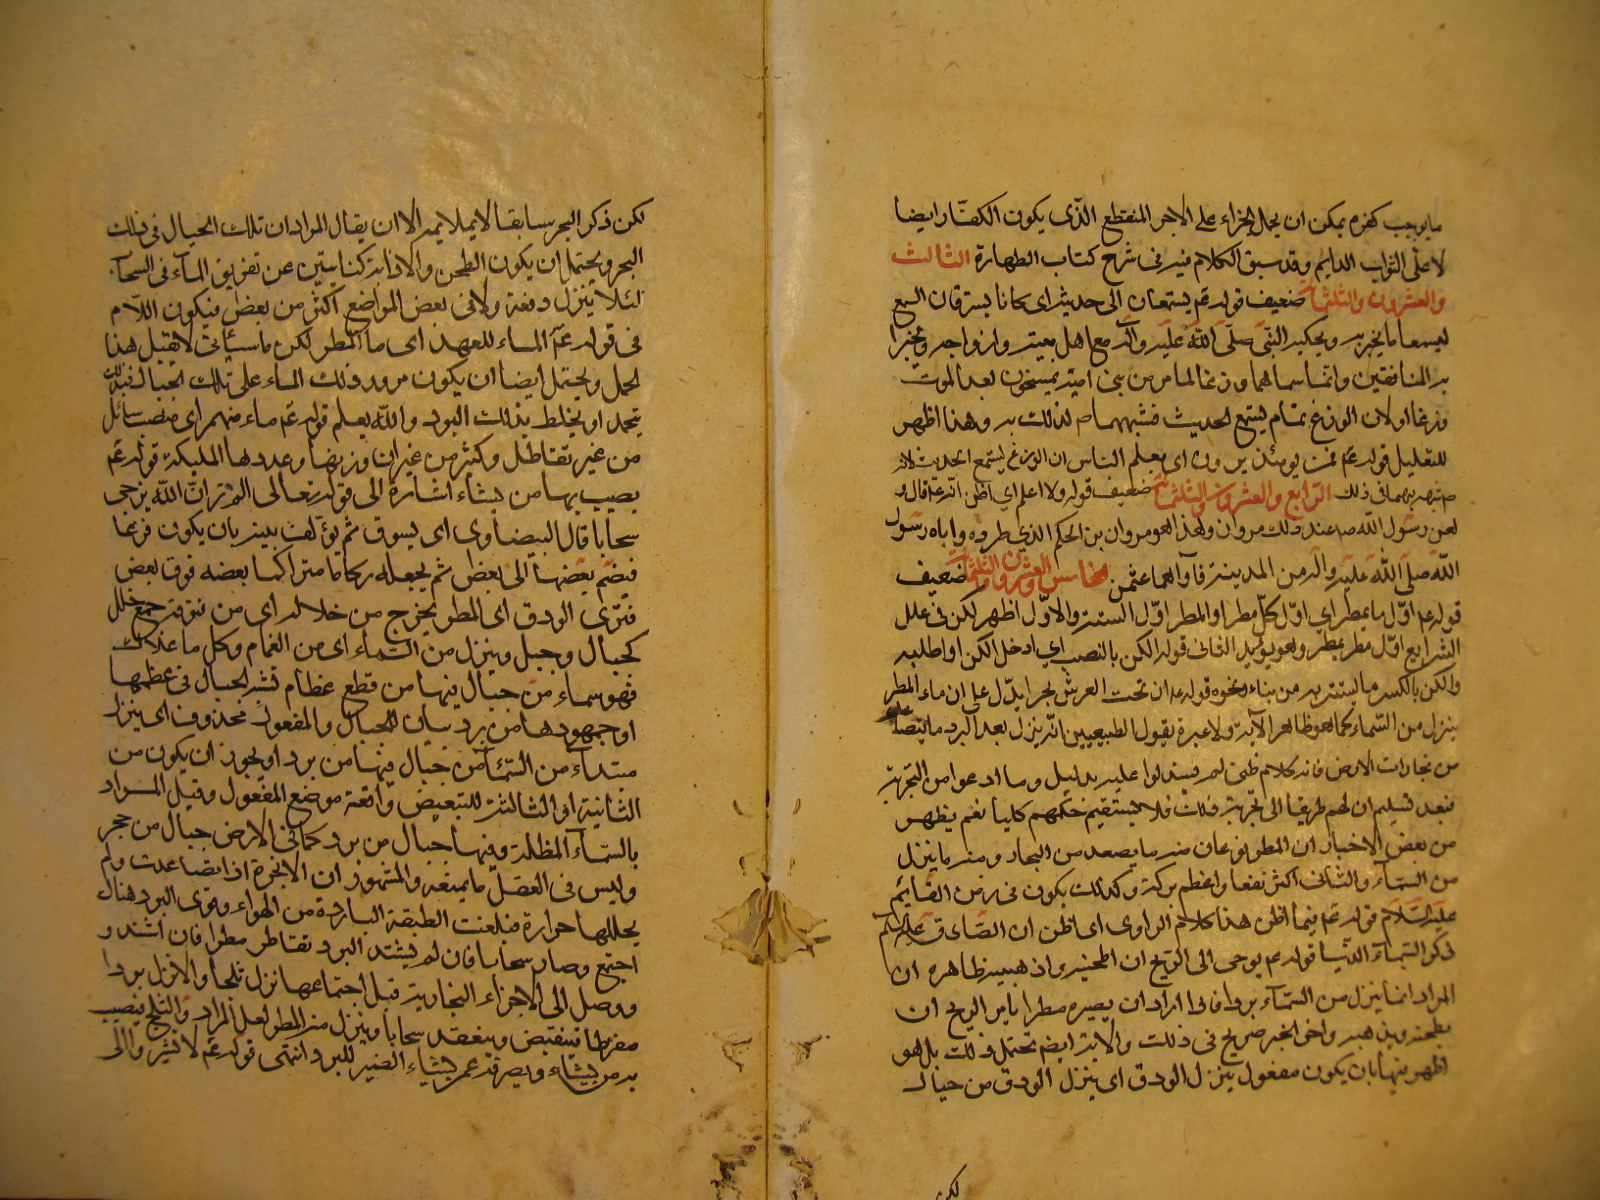 ما يوجب كفره يمكن ان يحمل الجزاء على الاجر المنقطع الذى يكون الكفار ايضا
لا على الثواب الدايم وقد سبق الكلام فيه فى شرح كتاب الطهارة الثالث
والعشرون والثلثمائة ضعيف قوله عم يستمعان الى حديثه اى كانا يسترقان السمع
ليسمعا ما يخبر به ويحكيه النبى صلى الله عليه وآله مع اهل بيته وازواجه ويخبرا
به المنافقين وانما سماهما وزغا لما مر من ان بنى امية يمسخون بعد الموت
وزغا او لان الوزغ نمام يستمع الحديث فشبههما ص لذلك به وهذا اظهر
للتعليل قوله عم فمن يومئذ يرون اى يعلم الناس ان الوزغ يستمع الحديث لانه
ص شبههما به فى ذلك الرابع والعشرون والثلثمائة ضعيف قوله ولا اعلم اى اظن انه عم قال و
لعن رسول الله ص عند ذلك مروان وهذا هو مروان بن الحكم الذى طرده واباه رسول
الله صلى الله عليه وآله من المدينة فآواهما عثمن الخامس والعشرون والثلثمائة ضعيف
قوله عم اول ما يمطر اى اول كل مطر او المطر اول السنة والاول اظهر لكن فى علل
الشرايع اول مطر يمطر وهو يؤيد الثانى قوله الكن بالنصب اى ادخل الكن او اطلبه
والكن بالكسر ما يستتر به من بناء ونحوه قوله عم ان تحت العرش بحرا يدل على ان ماء المطر
ينزل من السماء كما هو ظاهر الآية ولا عبرة بقول الطبيعيين انه ينزل بعد البرد ما يتصاعد
من بخارات الارض فانه كلام ظنى لم يستدلوا عليه بدليل وما ادعوا من التجربة
فبعد تسليم ان لهم طريقا الى تجربة ذلك فلا يستقيم حكمهم كليا نعم يظهر
من بعض الاخبار ان المطر نوعان منه ما يصعد من البحار ومنه ما ينزل
من السماء والثانى اكثر نفعا واعظم بركة وكذلك يكون فى زمن القايم
عليه السلام قوله عم فيما اظن هذا كلام الراوى اى اظن ان الصادق عليه السلم
ذكر السماء الدنيا قوله عم يوحى الى الريح ان اطحنيه واذهبيه ظاهره ان
المراد انما ينزل من السماء بردا فاذا اراد ان يصيره مطرا يامر الريح ان
يطحنه ويذهبه واخر الخبر صريح فى ذلك والآية ايضا تحتمل ذلك بل هو
اظهر فيها بان يكون مفعول ينزل الودق اى ينزل الودق من جبال
لكن
لكن ذكر البحر سابقا لا يملايمه الا ان يقال المراد ان تلك الجبال فى ذلك
البحر ويحتمل ان يكون الطحن والاذابة كنايتين عن تفريق الماء فى السحاب
لئلا ينزل دفعة ولا فى بعض المواضع اكثر من بعض فيكون اللام
فى قوله عم الماء للعهد اى ماء المطر لكن ما سيأتى لا يقبل هذا
الحمل ويحتمل ايضا ان يكون مرور ذلك الماء على تلك الجبال فبذلك
يتجمد او يختلط بذلك البرد والله يعلم قوله عم ماء منهمر اى منصب سائل
من غير تقاطر وكثر من غير ان وزنها وعددها المليكة قوله عم
يصيب بها من يشاء اشارة الى قوله تعالى الم تر ان الله يزجى
سحابا قال البيضاوى اى يسوق ثم يؤلف بينه بان يكون قزعا
فيضم بعضها الى بعض ثم يجعله ركاما متراكما بعضه فوق بعض
فترى الودق اى المطر يخرج من خلاله اى من فتوقه جمع خلل
كجبال وجبل وينزل من السماء اى من الغمام وكل ما علاك
فهو سماء من جبال فيها من قطع عظام تشبه الجبال فى عظمها
او جمودها من برد بيان للجبال والمفعول محذوف اى ينزل
مبتدأ من السماء من جبال فيها من برد او يجوز ان يكون من
الثانية او الثالثة للتبعيض واقعة موضع المفعول وقيل المراد
بالسماء المظلة وفيها جبال من برد كما فى الارض جبال من حجر
وليس فى العقل ما يمنعه والمشهور ان الابخرة اذا تصاعدت ولم
يحللها حرارة فبلغت الطبقة الباردة من الهواء وقوى البرد هناك
اجتمع وصار سحابا فان لم يشتد البرد تقاطر مطرا فان اشتد و
ووصل الى الاجزاء البخارية قبل اجتماعها نزل ثلجا والا نزل بردا
مفرطا فينقبض وينعقد سحابا وينزل منه المطر لعل المراد والثلج فيصيب
به من يشاء ويصرفه عمن يشاء الضمير للبرد انتهى قوله عم لا تشيروا الى